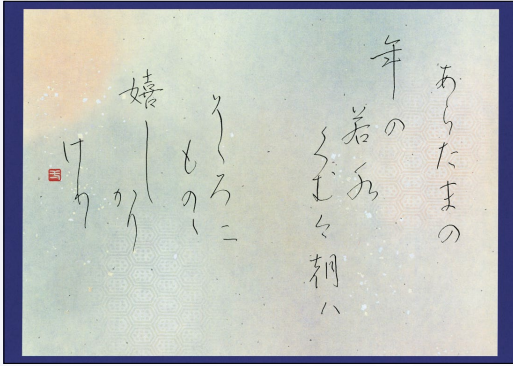 あらたまの
年の
若水
くむ今朝ハ
そゝろニ
ものゝ
嬉し
かり
けり